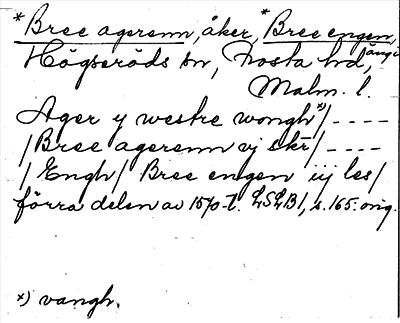 *Bree agerenn, åker, *Bree engen, äng i
Högseröds sn, Frosta hd,
Malm. l.
Ager y westre wongh*)/ ----
/Bree agerenn vj skr/ ----
/Engh/ Bree engen iij les/
förra delen av 1570-t. LSLB1, s. 165. orig.
*) vangh.